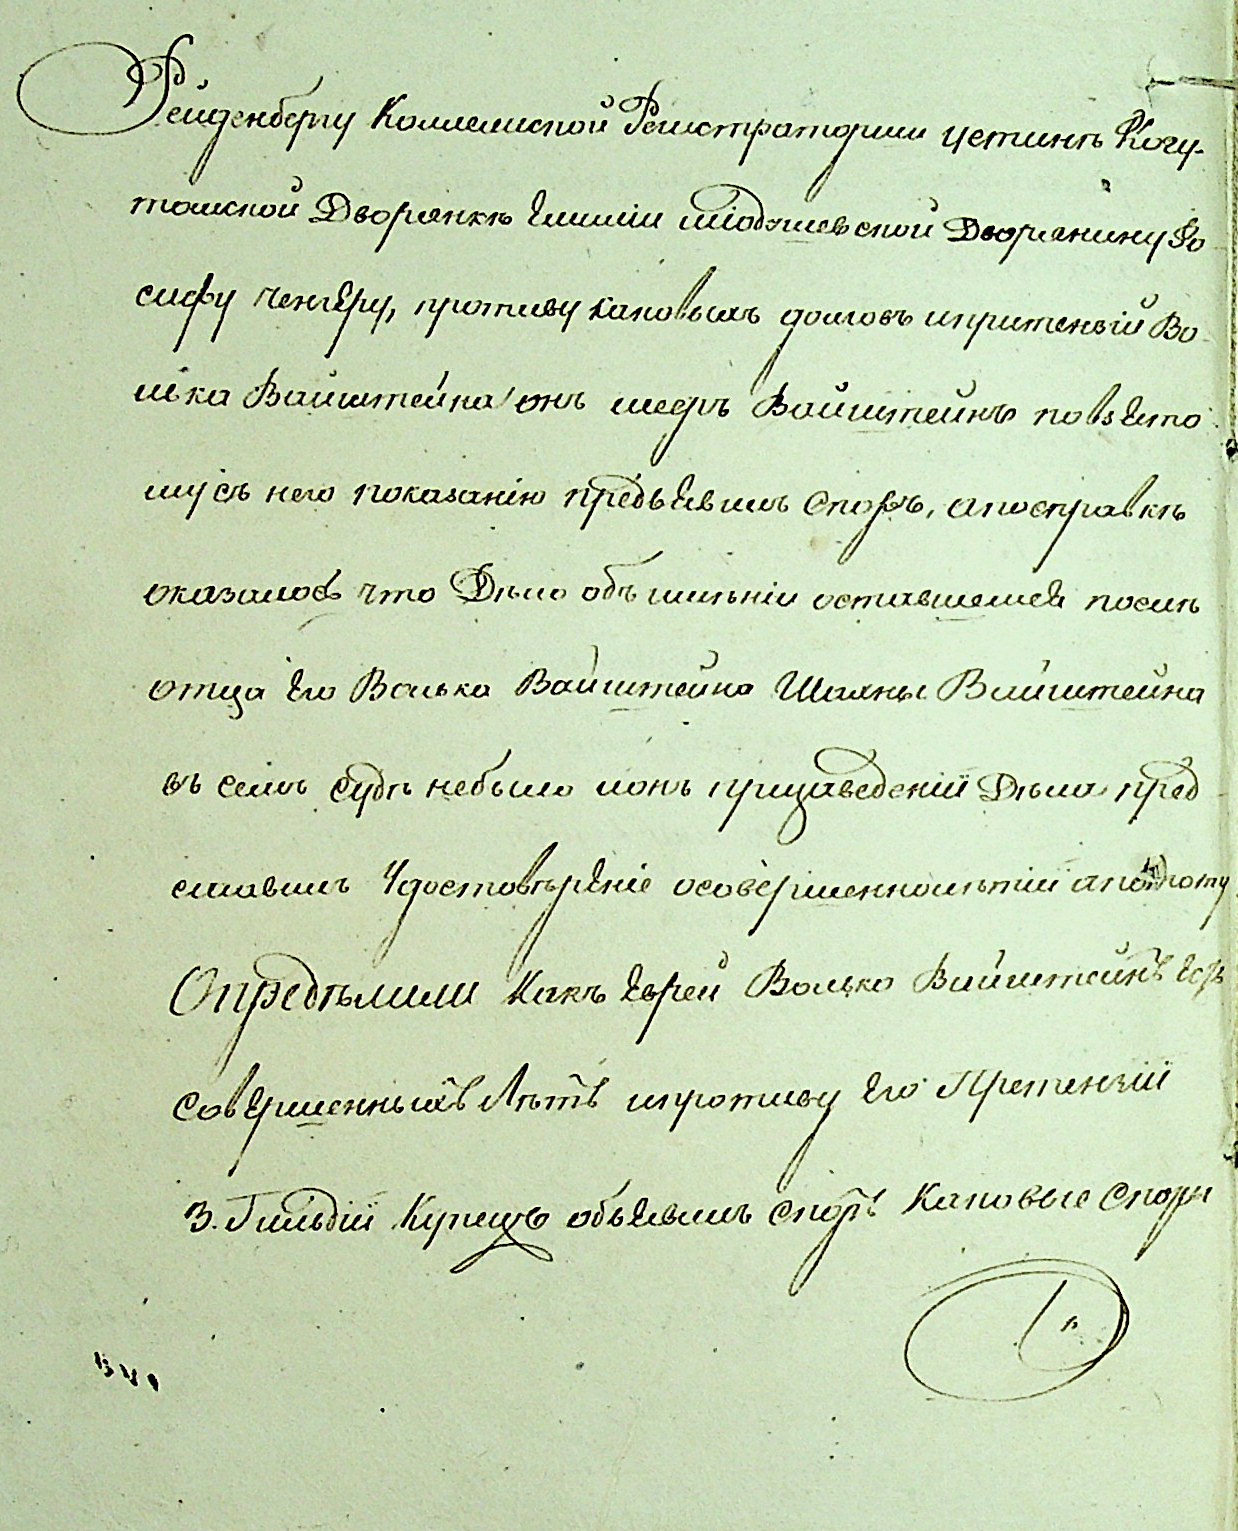 Рейденбергу Коллежской Регистраторши устинѣ Когу-
томской Дворянкѣ Емиліи Шіодошевской Дворянину Іо
сифу Ченгеру, противу каковыхъ долговъ ипритензій Во
лька Вайнштейна онъ мееръ Вайнштейнъ повзято
му съ него показанію предъявилъ споръ, апосправкѣ
оказалось что Дѣло объ имѣніи оставшемся послѣ
отца его Волька Вайнштейна Шаяны Вайнштейна
въ семъ судѣ небыло ионъ припроизведеніи Дѣла пред
ставилъ Удостовѣреніе осовершеннолѣтіи апотому
Опредѣлили Какъ Еврей Волько Вайнштейнъ есть
совершенныхъ Лѣтъ ипротиву Его Претензій
3. Гильдіи Купецъ объявилъ споръ Каковые споры